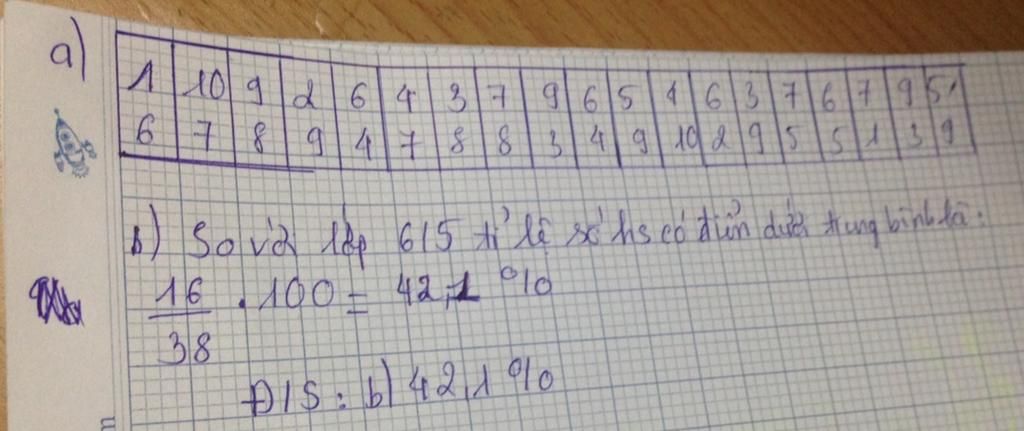 a)
1 10 9 2 6 4 3 7 9 6 5 1 6 3 7 6 7 9 5
6 7 8 9 4 7 8 8 3 4 9 10 2 9 5 5 1 3 9
b) So với lớp 6/5 tỉ lệ số hs có điểm dưới trung bình là:
16/38 . 100 = 42,1 %
Đ/S: b) 42,1 %